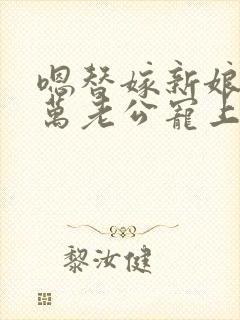 嗯替嫁新娘
萬老公寵上
黎汝健